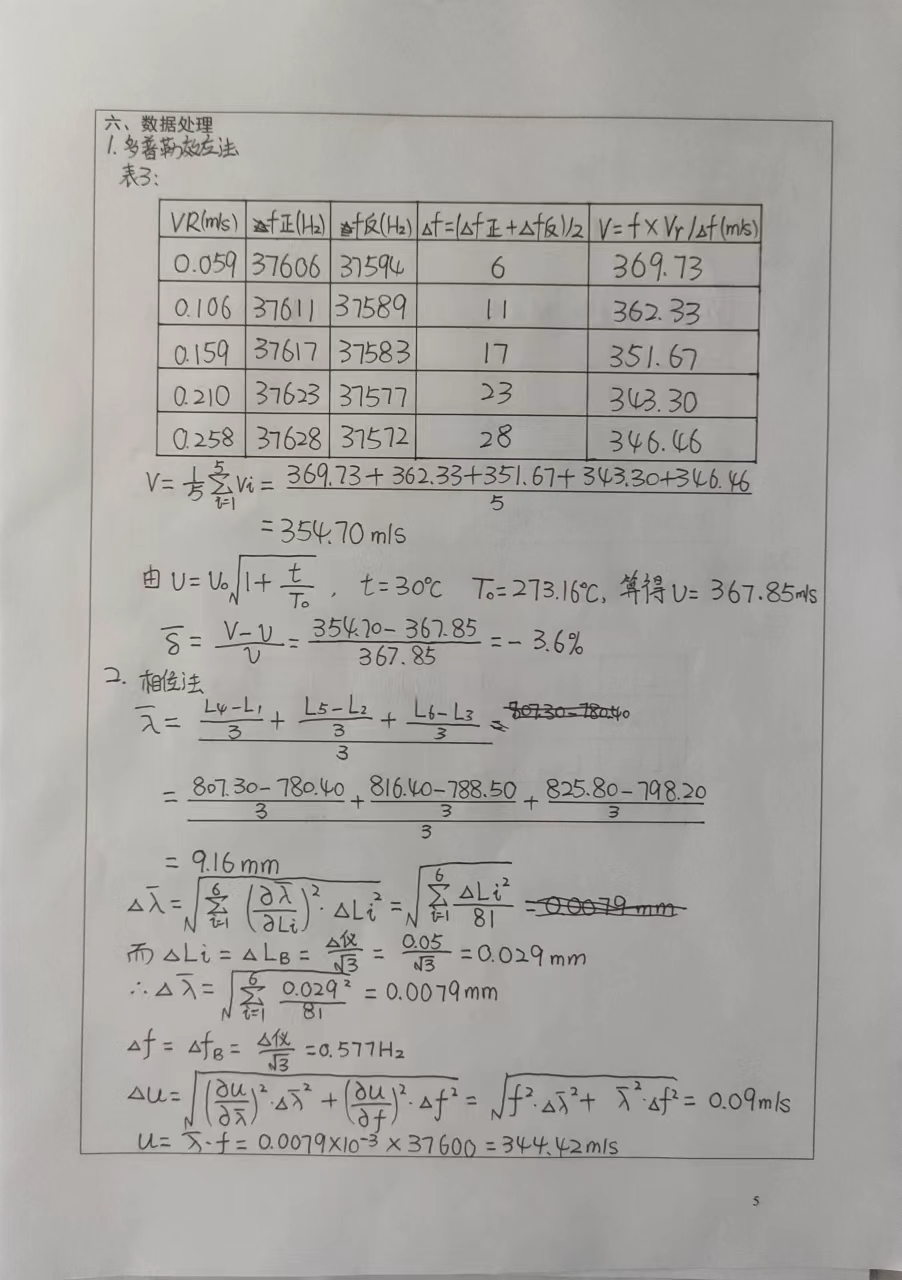 六、数据处理
1. 多普勒效应法
表3:
VR(m/s) f正(Hz) f反(Hz) Δf=(Δf正+Δf反)/2 V=f×Vr/Δf(m/s)
0.059 37606 37594 6 369.73
0.106 37611 37589 11 362.33
0.159 37617 37583 17 351.67
0.210 37623 37577 23 343.30
0.258 37628 37572 28 346.46
V= 1/5 Σ(i=1→5) Vi = (369.73+362.33+351.67+343.30+346.46)/5
=354.70 m/s
由 υ=υ₀√(1+t/T₀), t=30℃ T₀=273.16℃, 算得υ=367.85m/s
δ̄ = (V-υ)/υ = (354.70-367.85)/367.85 = -3.6%
2. 相位法
λ̄ = ((L4-L1)/3 + (L5-L2)/3 + (L6-L3)/3)/3 = 807.30-780.40
= ((807.30-780.40)/3 + (816.40-788.50)/3 + (825.80-798.20)/3)/3
= 9.16 mm
Δλ̄ = √(Σ(i=1→6) (∂λ̄/∂Li)²·ΔLi²) = √(Σ(i=1→6) ΔLi²/81) = 0.0079 mm
而 ΔLi = ΔLB = Δ仪/√3 = 0.05/√3 = 0.029 mm
∴ Δλ̄ = √(Σ(i=1→6) 0.029²/81) = 0.0079mm
Δf = ΔfB = Δ仪/√3 = 0.577Hz
Δu = √((∂u/∂λ̄)²·Δλ̄² + (∂u/∂f)²·Δf²) = √(f²·Δλ̄² + λ̄²·Δf²) = 0.09m/s
u = λ̄·f = 0.0079×10⁻³×37600 = 344.42m/s
5